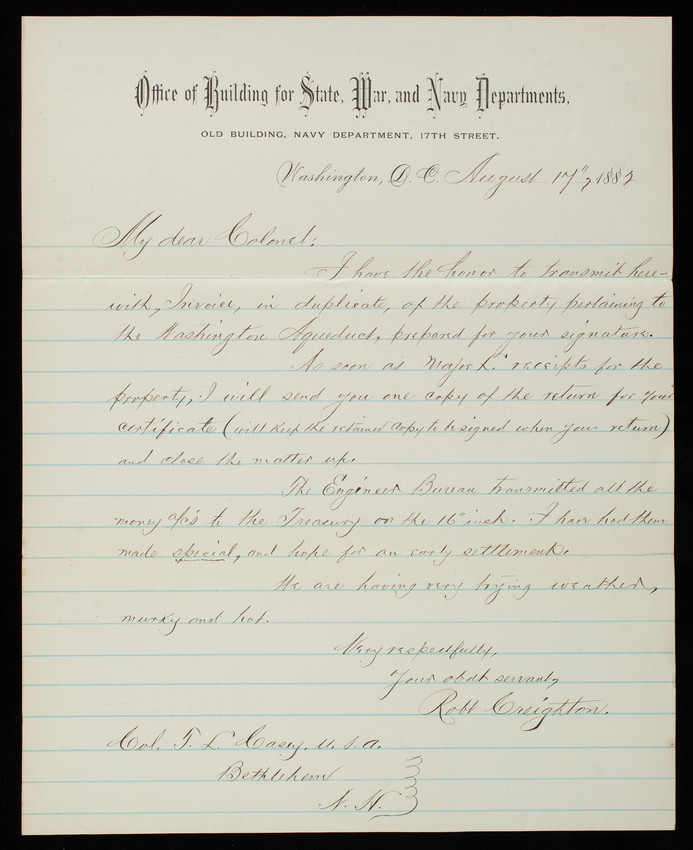 Office of Building for State, War, and Navy Departments.
OLD BUILDING, NAVY DEPARTMENT, 17TH STREET.
Washington, D. C. August 17", 1882
My dear Colonel:
I have the honor to transmit here-
with, Invoice, in duplicate, of the property pertaining to
the Washington Aqueduct, prepared for your signature.
As soon as Major L. receipts for the
property, I will send you one copy of the return for your
certificate (will keep the retained copy to be signed when you return)
and close the matter up.
The Engineer Bureau transmitted all the
money a/c's to the Treasury on the 16" inst. I have had them
made special, and hope for an early settlement.
We are having very trying weather,
murky and hot.
Very respectfully,
Your obdt servant,
Robt Creighton.
Col. T. L. Casey, U.S.A.
Bethlehem
N. H.